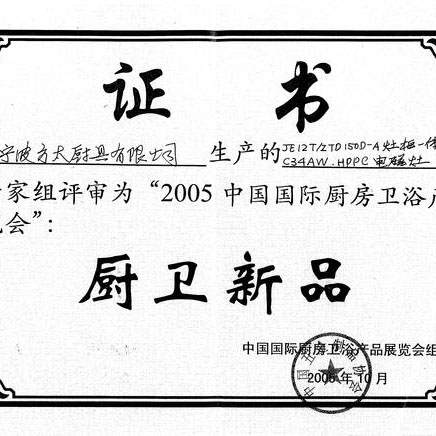 证书
宁波方太厨具有限公司 生产的 JE12T/ZTD150D-A灶柜一体
C34AW.HDPC 电磁灶
家组评审为“2005中国国际厨房卫浴产
会”:
厨卫新品
中国国际厨房卫浴产品展览会组
2005年10月